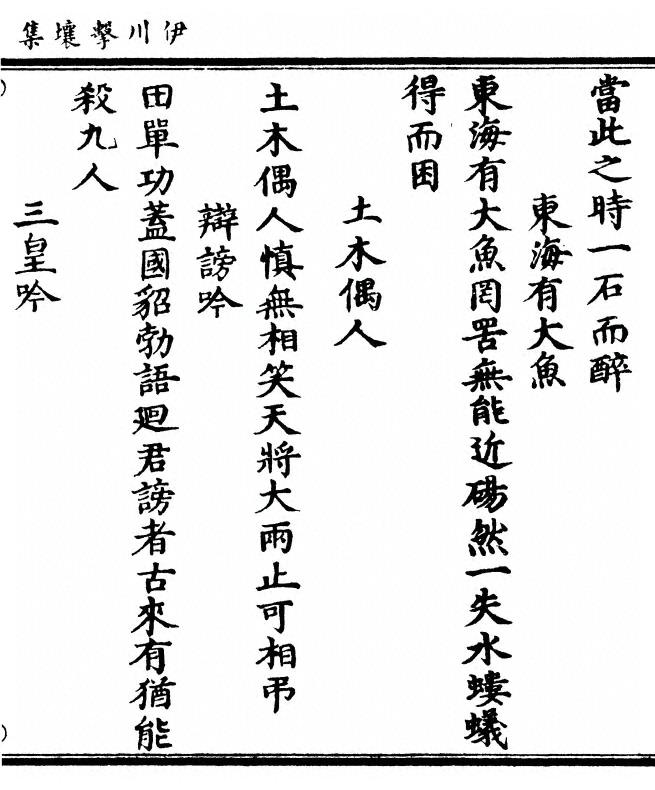 伊川擊壤集
當此之時一石而醉
東海有大魚
東海有大魚罔罟無能近碭然一失水螻蟻
得而困
土木偶人
土木偶人慎無相笑天將大雨止可相弔
辯謗吟
田單功蓋國貂勃語迴君謗者古來有猶能
殺九人
三皇吟